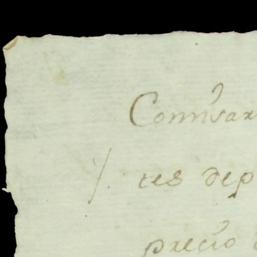 Comisar
tes dep
precio